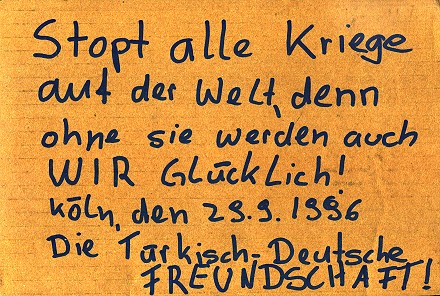 Stopt alle Kriege
auf der Welt, denn
ohne sie werden auch
WIR Glücklich!
Köln, den 29.9.1996
Die Türkisch-Deutsche
FREUNDSCHAFT!